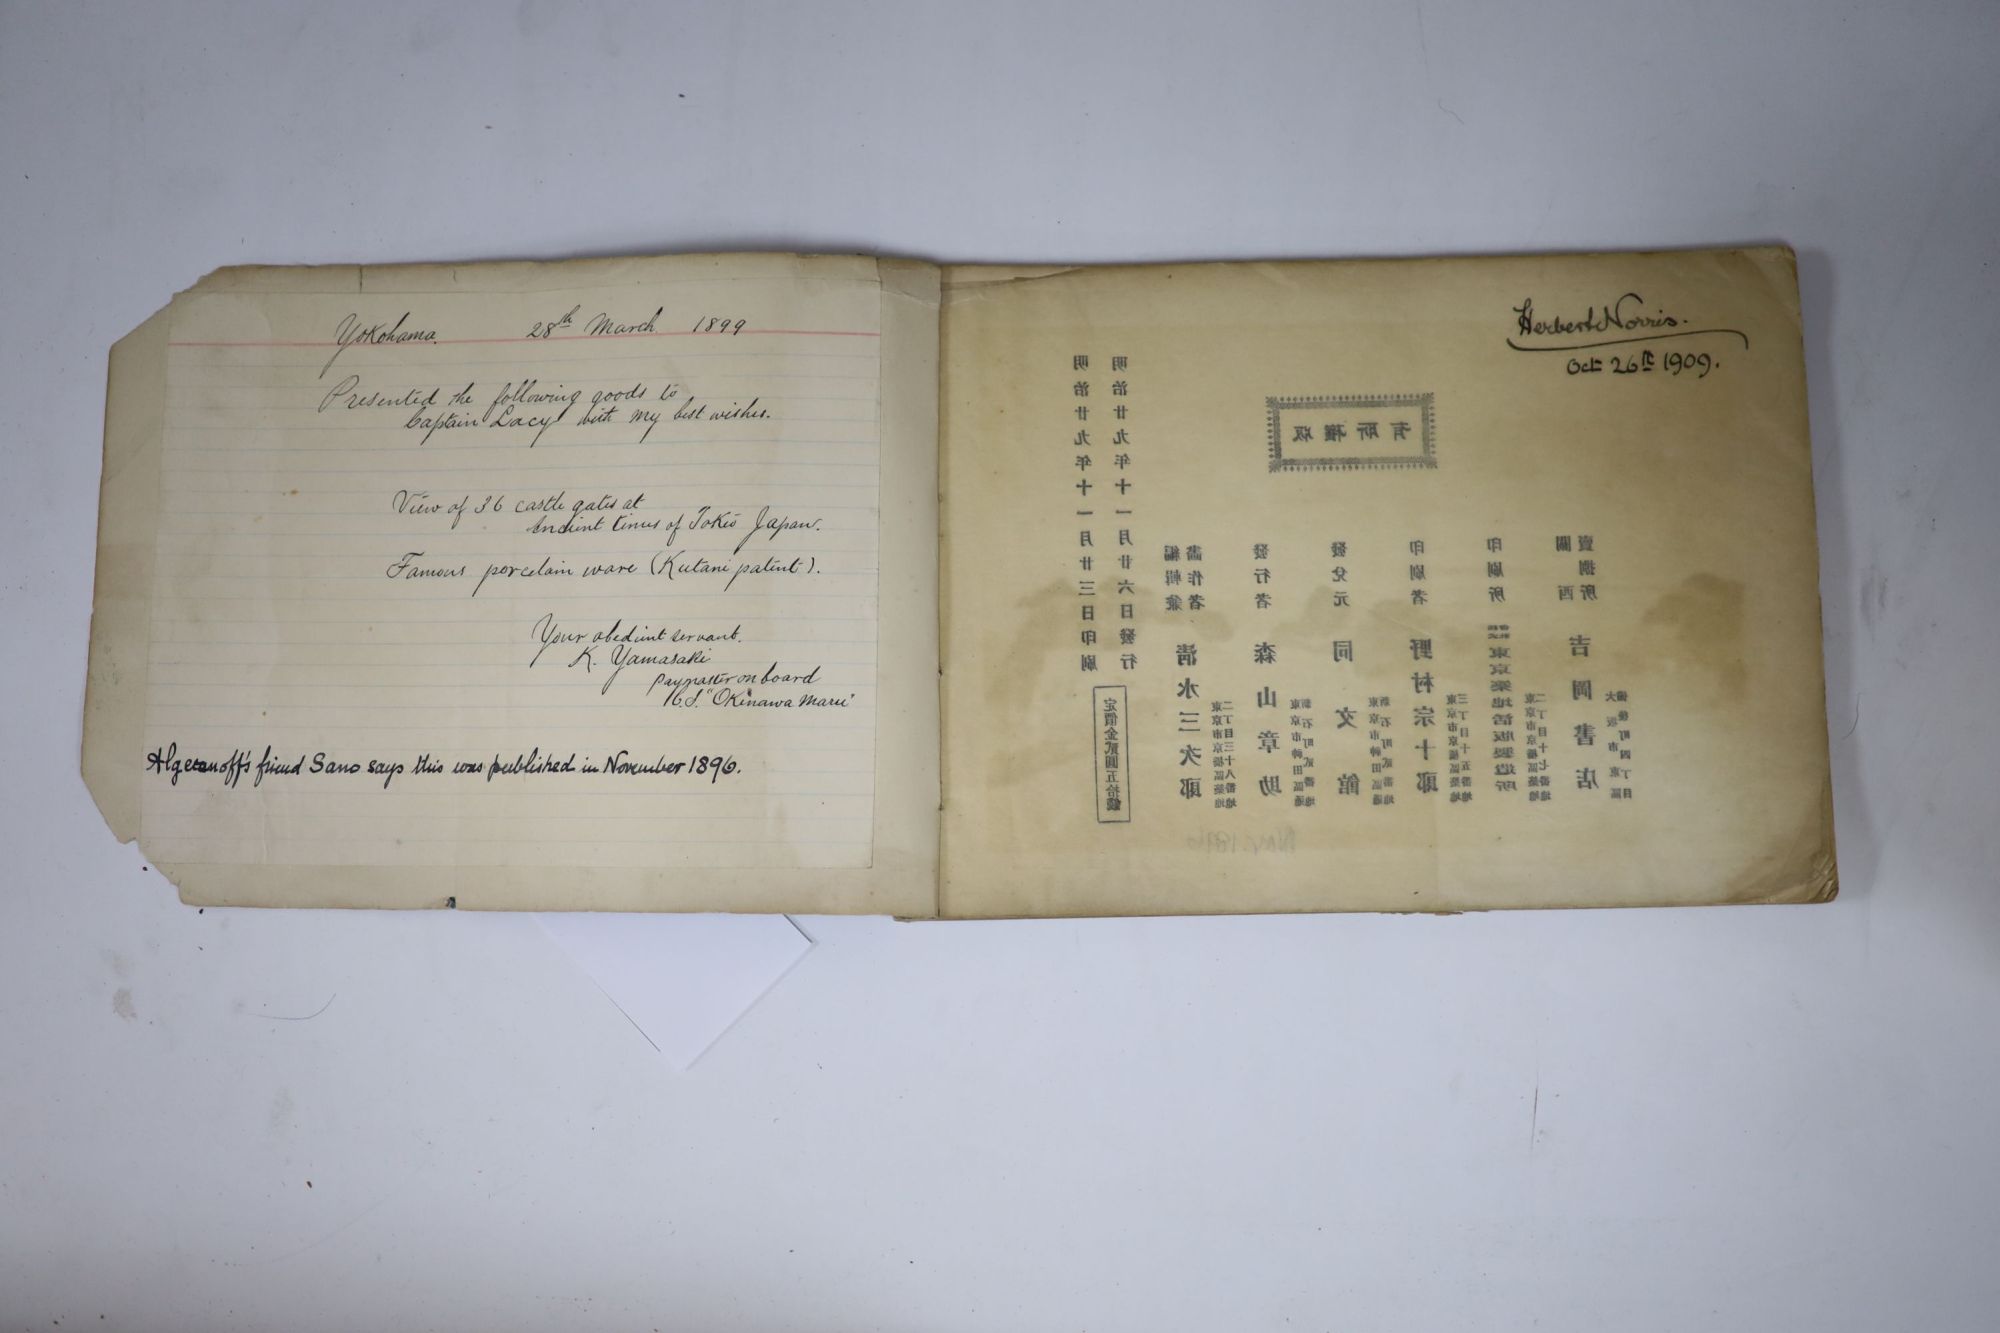 Yokohama. 28th March 1899
Presented the following goods to
Captain Lacy with my best wishes.
View of 36 castle gates at
Ancient times of Tokio Japan.
Famous porcelain ware (Kutani patent).
Your obedient servant.
K. Yamasaki
paymaster on board
"Okinawa Maru"
Algeranoff's friend Sano says this was published in November 1896.
Herbert Norris.
Oct 26th 1909.
版權所有
明治廿九年十一月廿三日印刷
明治廿九年十一月廿六日發行
定價金貳圓五拾錢
編輯兼
畫作者
清水三次郎
東京市京橋區築地
二丁目三十八番地
發行者 森山章助
東京市神田區通
新石町貳番地
發兌元 同文館
東京市神田區通
新石町貳番地
印刷者 野村宗十郎
東京市京橋區築地
三丁目十五番地
印刷所 株式會社東京築地活版製造所
東京市京橋區築地
二丁目十七番地
關西
賣捌所
吉岡書店
大坂市東區
備後町四丁目
Nov. 1896